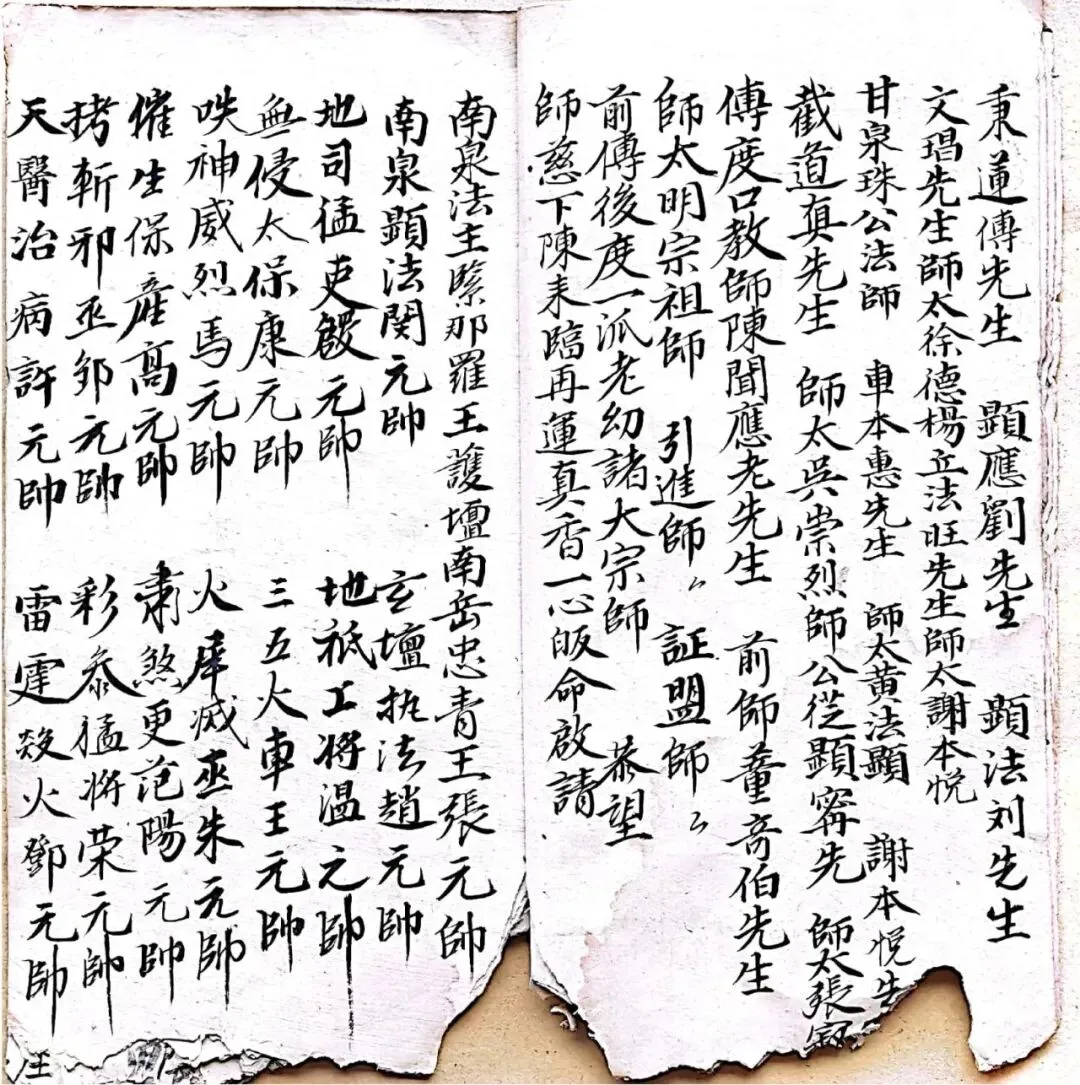 秉運傳先生　顯應劉先生　顯法刘先生
文琩先生師太徐德楊立法旺先生師太謝本悦
甘泉珠公法師　車本惠先生　師太黄法顯　謝本悦生
截道真先生　師太吳崇烈師公從顯寗先　師太張
傳度口教師陳聞應老先生　前師董奇伯先生
師太明宗祖師　引進師〻　証盟師〻
前傳後度一派老幼諸大宗師　恭望
師慈下陳耒臨再運真香一心皈命啟請
南泉法主緊那羅王護壇南岳忠青王張元帥
南泉顯法関元帥　玄壇执法趙元帥
地司猛吏殷元帥　地祇工將温元帥
無侵太保康元帥　三五火車王元帥
咉神威烈馬元帥　火犀滅巫朱元帥
催生保產高元帥　肅煞更范陽元帥
拷斬邪巫邹元帥　彩叅猛將荣元帥
天醫治病許元帥　雷霆殺火鄧元帥
王